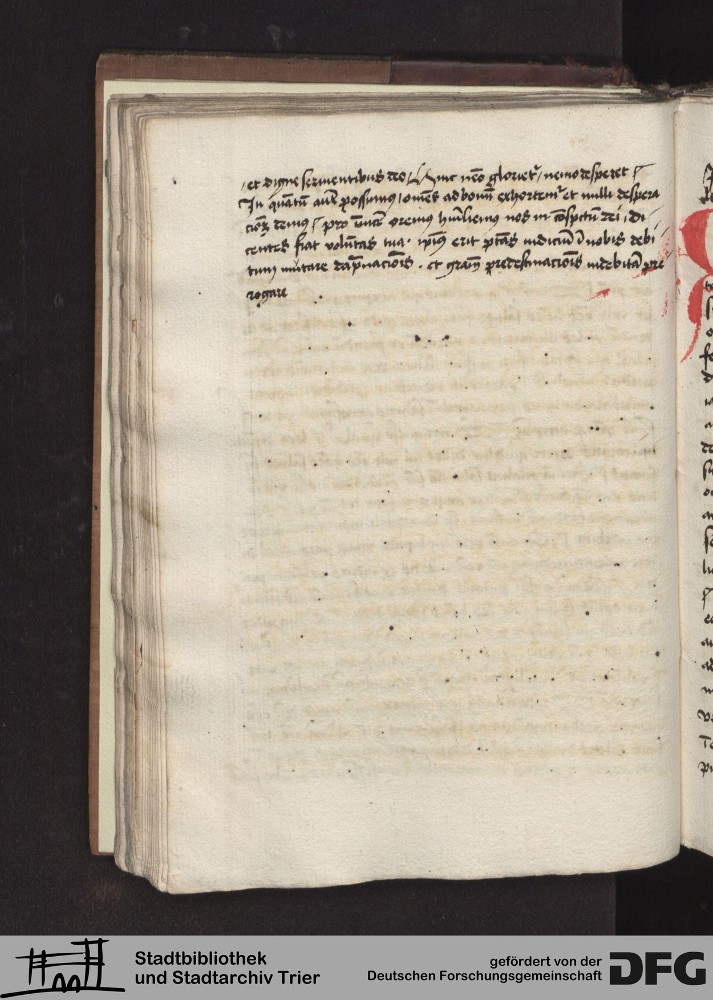 et digne seruientibus deo / Hinc nēo glorietʳ / nemo desperet /
In quātū autē possumus / omēs ad bonū exhortemʳ et nulli despera
cioꝫ demus / pro inuicē oremus hūiliemus nos in cōspectu dei / di
centes fiat volūtas tua · ipīus erit ptās iudiciū i nobis debi
tum mutare dāpnacōis · et grām predestinacōis indebitā pre
rogare
Stadtbibliothek
und Stadtarchiv Trier
gefördert von der
Deutschen Forschungsgemeinschaft
DFG